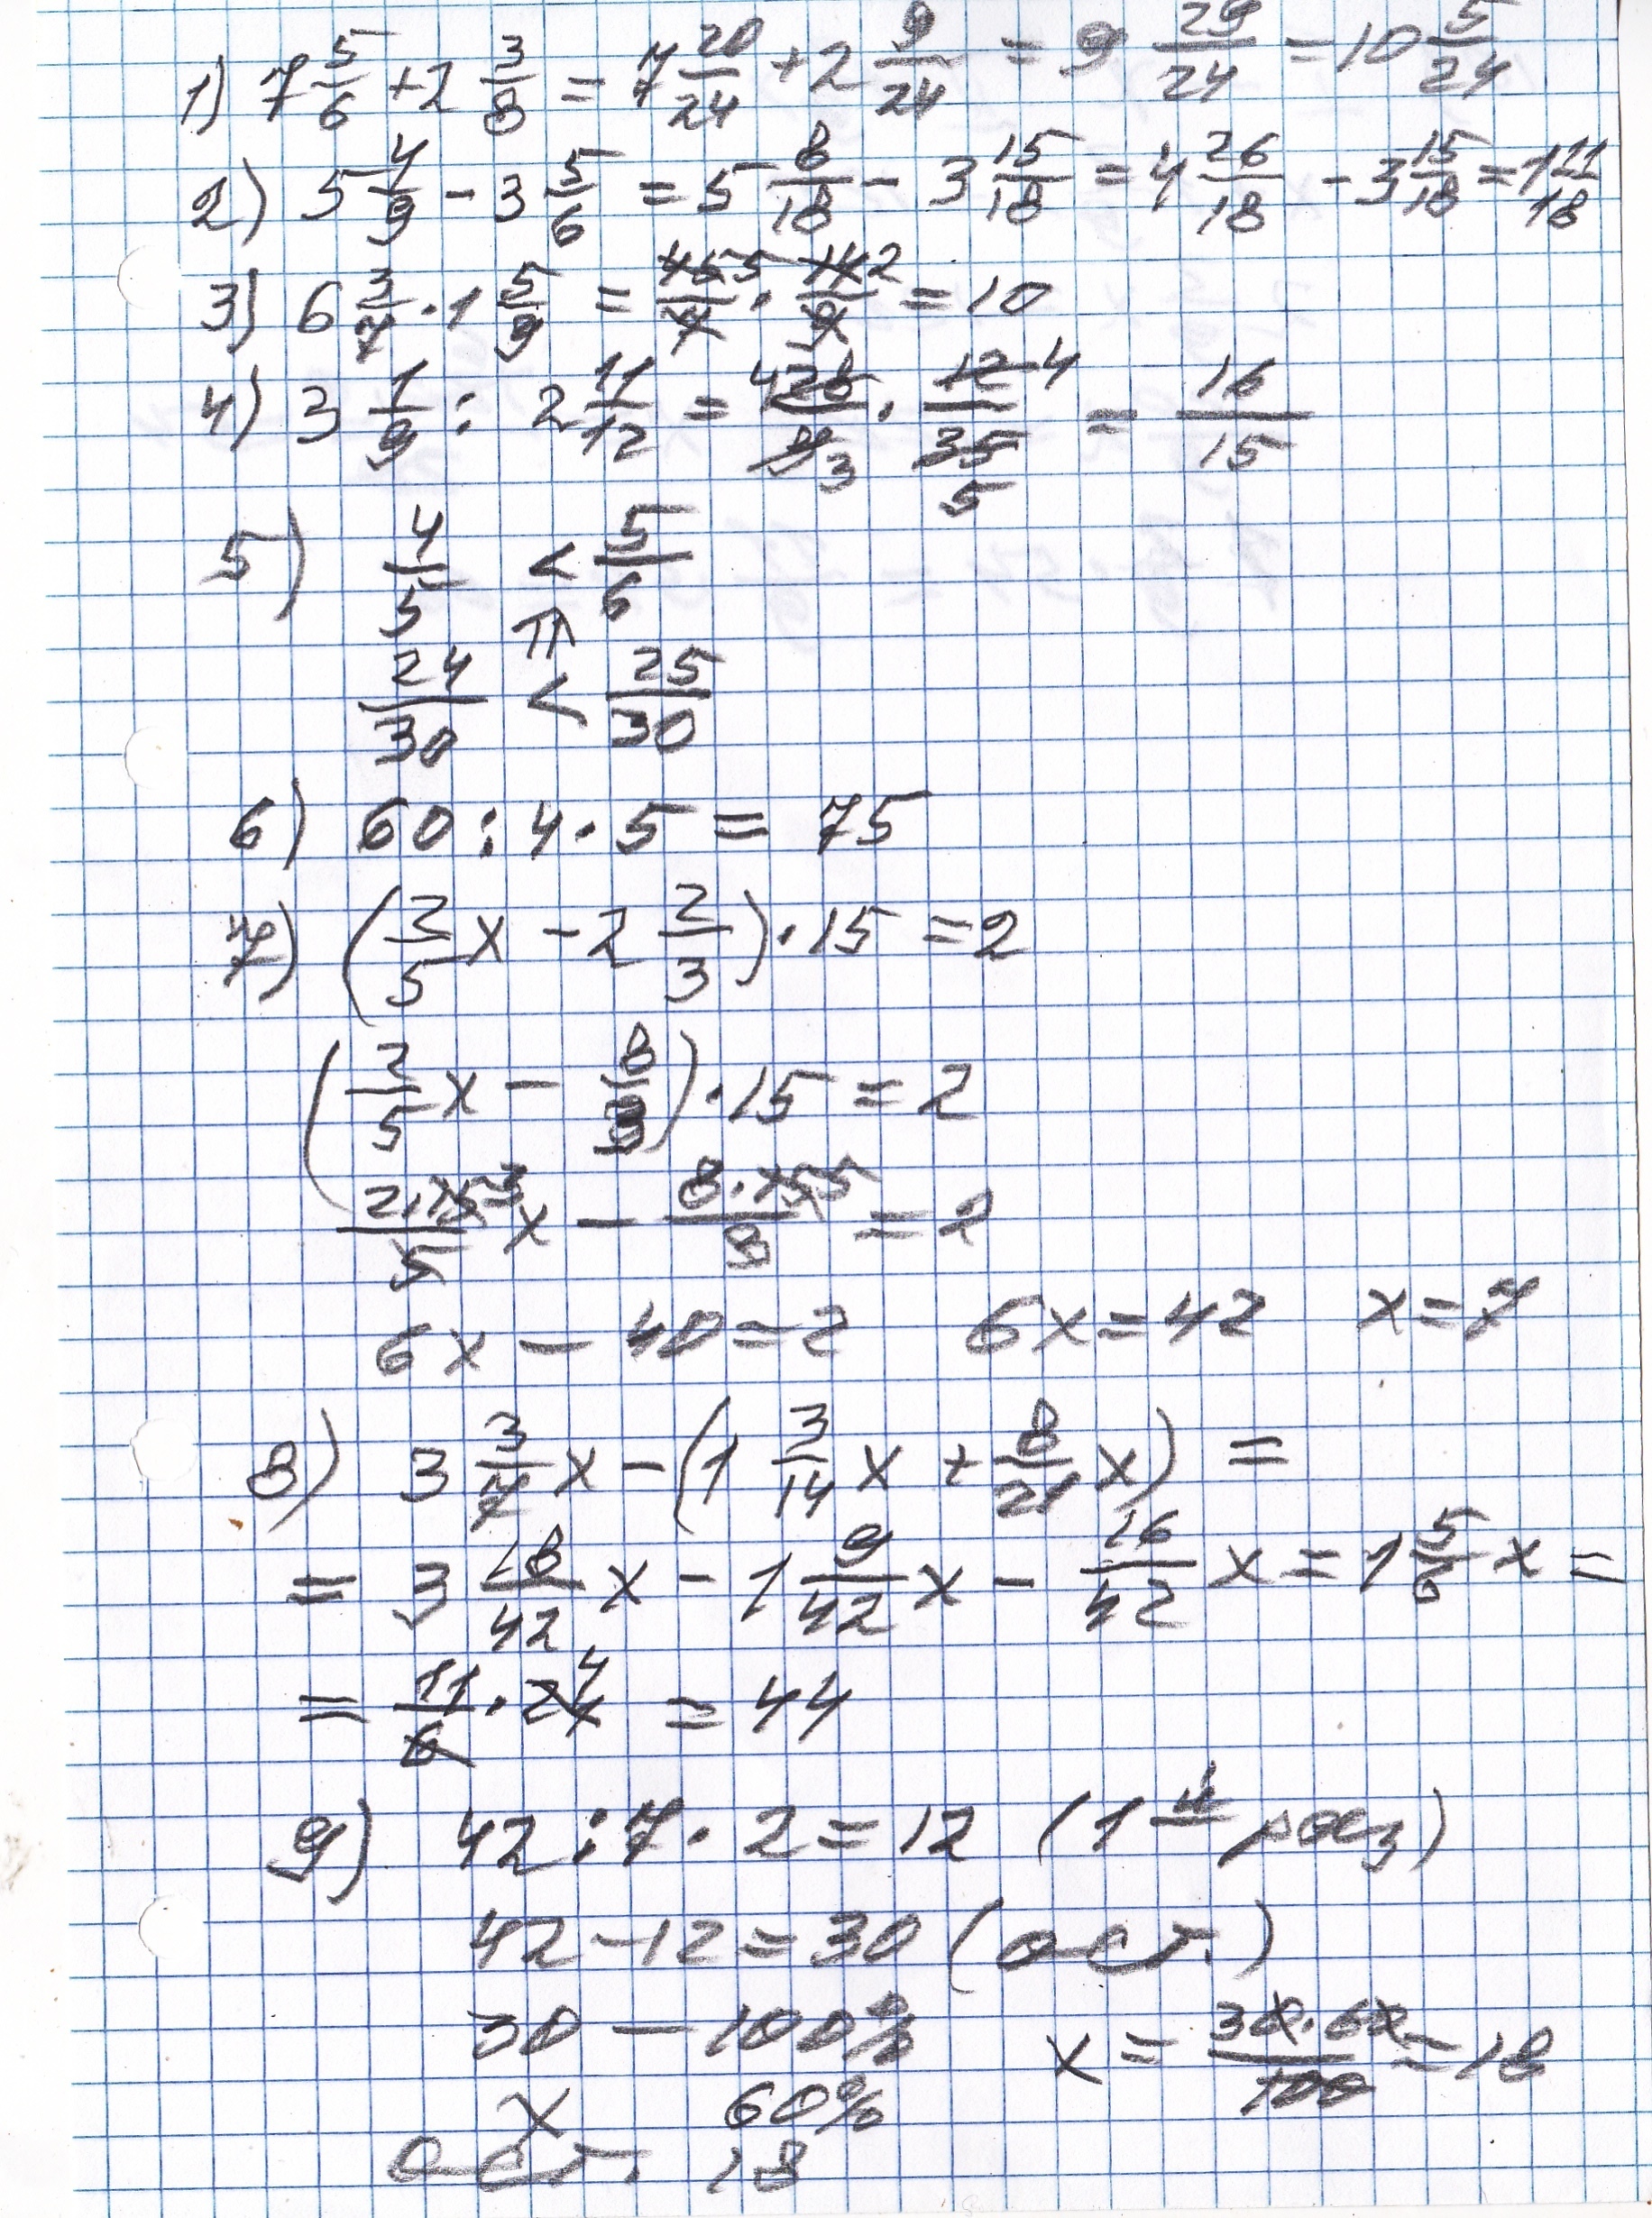 1) 7 5/6 + 2 3/8 = 7 20/24 + 2 9/24 = 9 29/24 = 10 5/24
2) 5 4/9 - 3 5/6 = 5 8/18 - 3 15/18 = 4 26/18 - 3 15/18 = 1 11/18
3) 6 3/7 · 1 5/9 = 45 5/7 · 14 2/9 = 10
4) 3 1/9 : 2 11/12 = 4 28/9 3 · 12 4/35 5 = 16/15
5) 4/5 < 5/6
⇑
24/30 < 25/30
6) 60 : 4 · 5 = 75
7) (2/5 x - 2 2/3) · 15 = 2
(2/5 x - 8/3) · 15 = 2
2·15 3/5 x - 8·15 5/3 = 2
6x - 40 = 2 6x = 42 x = 7
8) 3 3/7 x - (1 3/14 x + 8/21 x) =
= 3 18/42 x - 1 9/42 x - 16/42 x = 1 5/6 x =
= 11/6 · 24 4 = 44
9) 42 : 7 · 2 = 12 (1й раз)
42 - 12 = 30 (ост.)
30 — 100% x = 30·60/100 = 18
x 60%
ост. 18